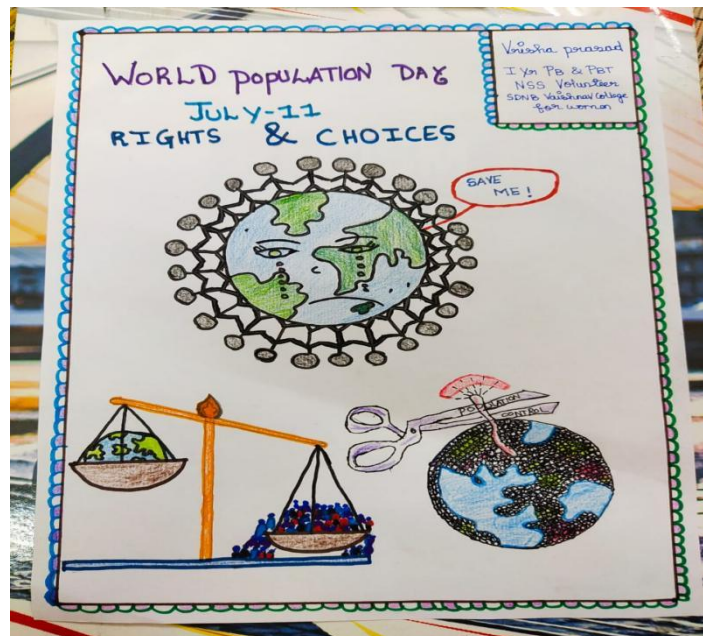 WORLD POPULATION DAY
JULY-11
RIGHTS & CHOICES
Vrisha prasad
I Yr PB & PBT
NSS Volunteer
SDNB Vaishnav College
for women
SAVE
ME!
POPULATION
CONTROL